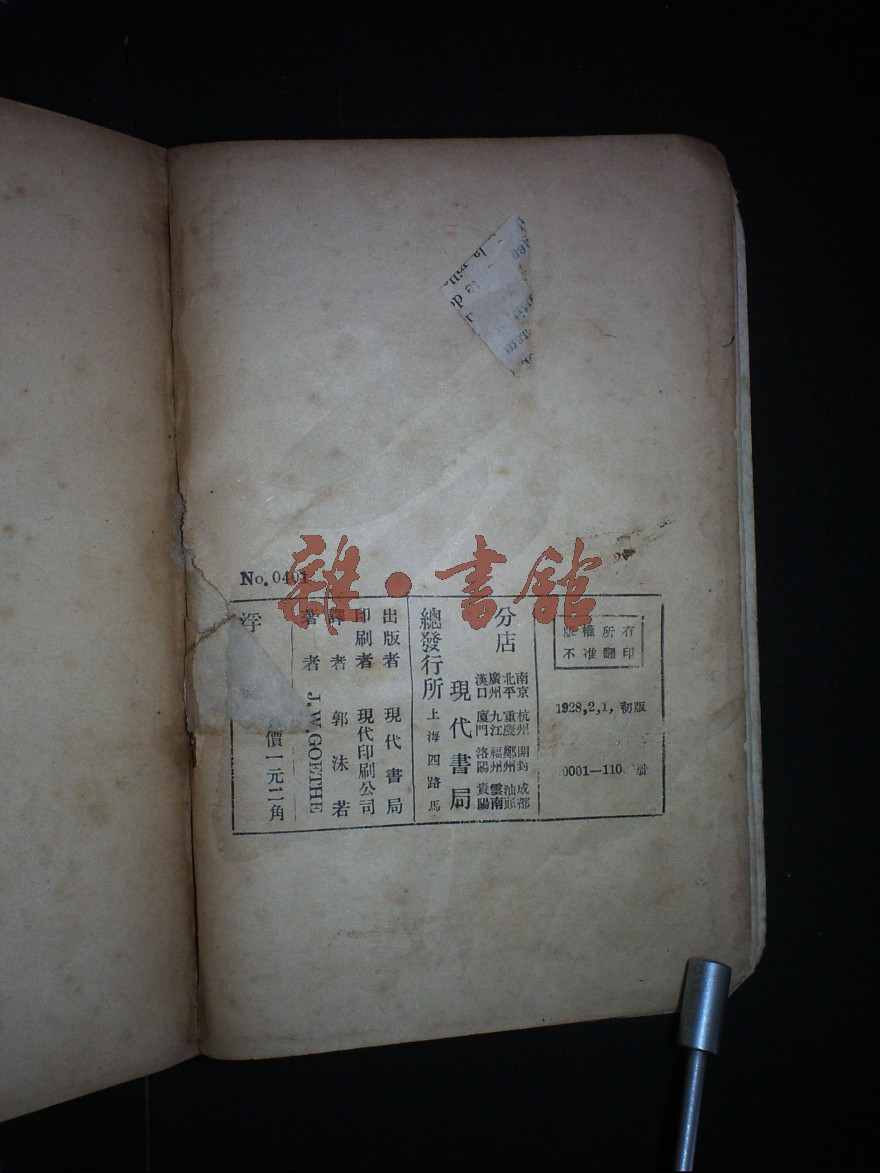 雜·書館
No. 0401
版權所有
不准翻印
1928,2,1, 初版
0001—110 冊
分店
南京 杭州 開封 成都
北平 重慶 鄭州 汕頭
廣州 九江 福州 雲南
漢口 廈門 洛陽 貴陽
總發行所 上海四馬路 現代書局
出版者 現代書局
印刷者 現代印刷公司
譯者 郭沫若
著者 J.W.GOETHE
浮
價一元二角